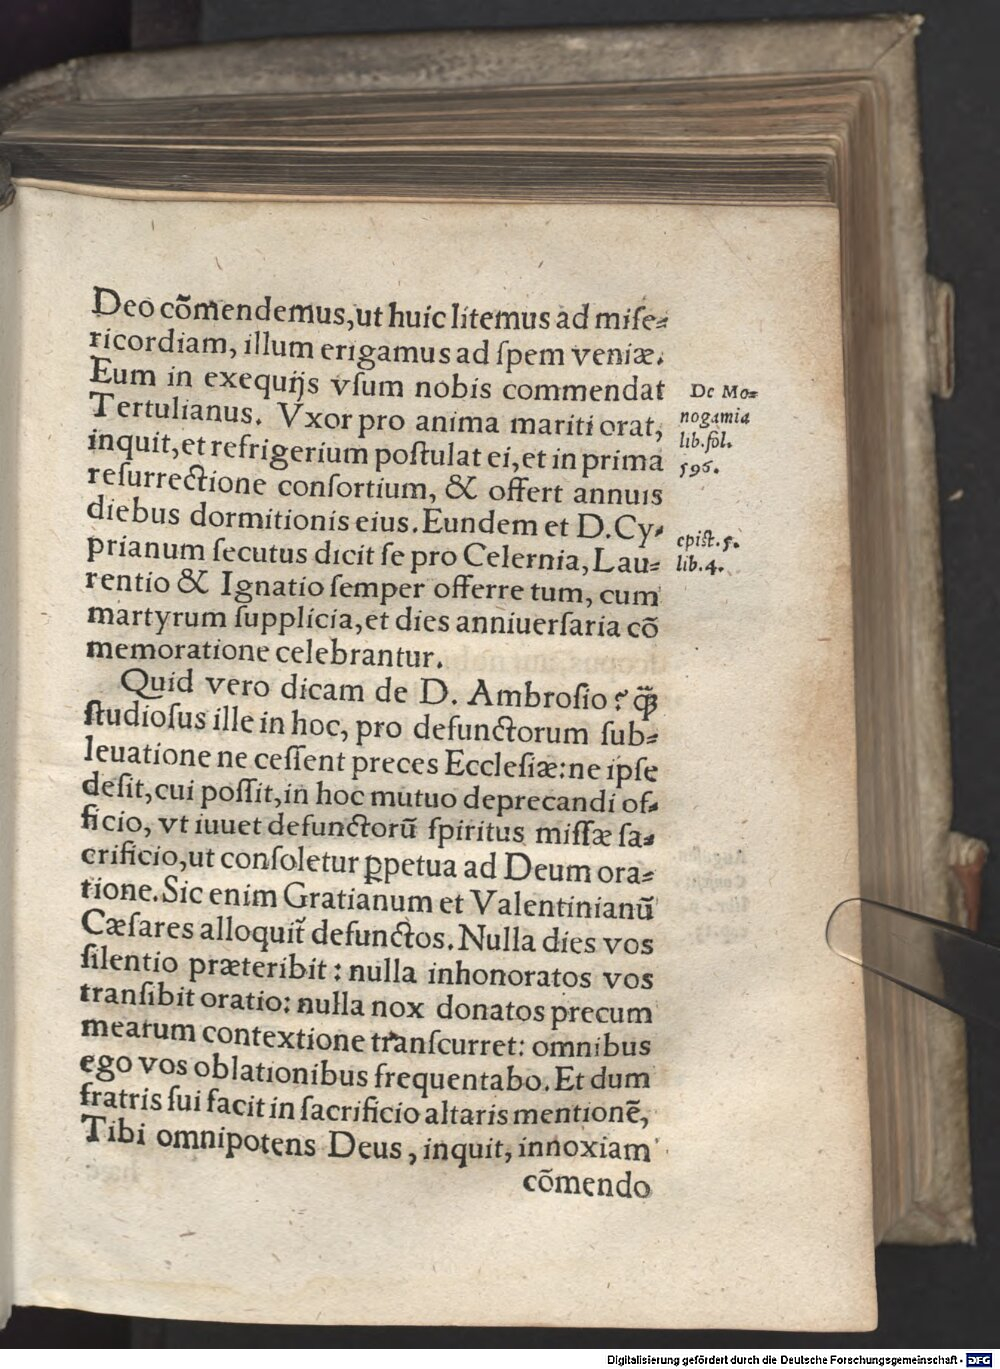 Deo cõmendemus,ut huic litemus ad miſe⸗
ricordiam, illum erigamus ad ſpem veniæ.
Eum in exequijs vſum nobis commendat
Tertulianus. Vxor pro anima mariti orat,
inquit,et refrigerium poſtulat ei,et in prima
reſurrectione conſortium, & offert annuis
diebus dormitionis eius. Eundem et D. Cy⸗
prianum ſecutus dicit ſe pro Celernia, Lau⸗
rentio & Ignatio ſemper offerre tum, cum
martyrum ſupplicia,et dies anniuerſaria cõ
memoratione celebrantur.
De Mo⸗
nogamia
lib. fol.
596.
epiſt. 5.
lib. 4.
Quid vero dicam de D. Ambroſio? q̃
ſtudioſus ille in hoc, pro defunctorum ſub⸗
leuatione ne ceſſent preces Eccleſiæ: ne ipſe
deſit, cui poſſit, in hoc mutuo deprecandi of⸗
ficio, vt iuuet defunctorũ ſpiritus miſſæ ſa⸗
crificio,ut conſoletur ꝑpetua ad Deum ora⸗
tione. Sic enim Gratianum et Valentinianũ
Cæſares alloquit̃ defunctos. Nulla dies vos
ſilentio præteribit: nulla inhonoratos vos
tranſibit oratio: nulla nox donatos precum
mearum contextione tranſcurret: omnibus
ego vos oblationibus frequentabo. Et dum
fratris ſui facit in ſacrificio altaris mentionẽ,
Tibi omnipotens Deus, inquit, innoxiam
cõmendo
Digitalisierung gefördert durch die Deutsche Forschungsgemeinschaft - DFG